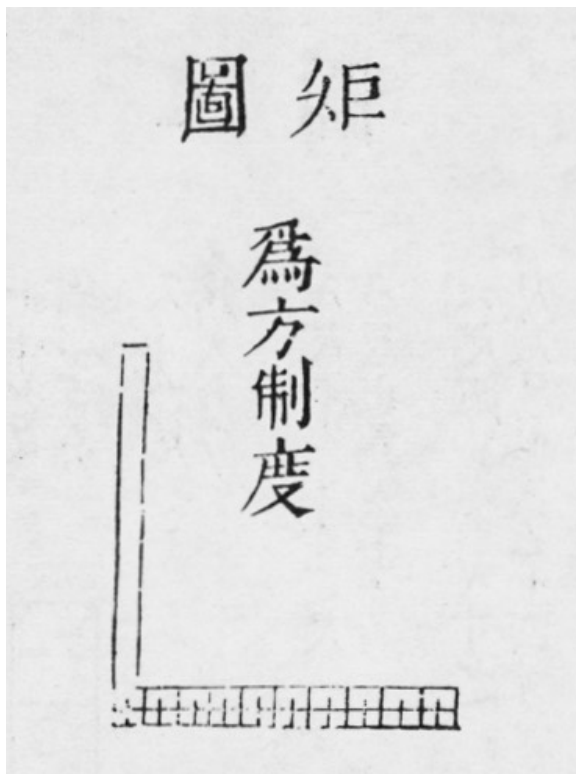 矩圖
為方制度